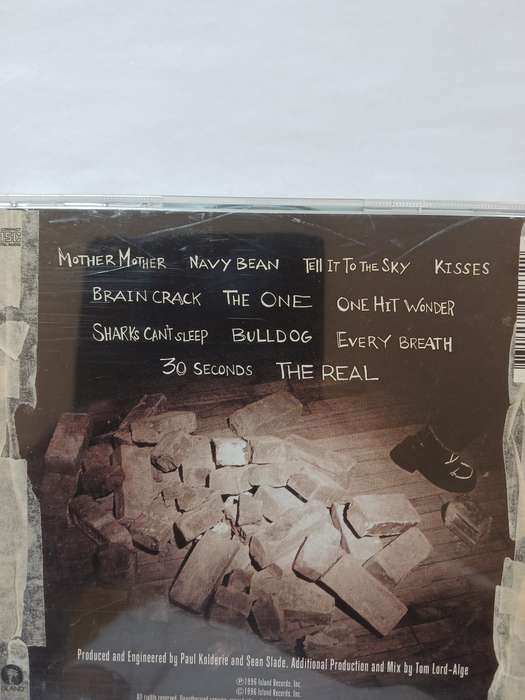 MOTHER MOTHER NAVY BEAN TELL IT TO THE SKY KISSES
BRAIN CRACK THE ONE ONE HIT WONDER
SHARKS CAN'T SLEEP BULLDOG EVERY BREATH
30 SECONDS THE REAL
Produced and Engineered by Paul Kolderie and Sean Slade. Additional Production and Mix by Tom Lord-Alge
℗1996 Island Records, Inc.
©1996 Island Records, Inc.
All rights reserved. Unauthorized
ISLAND